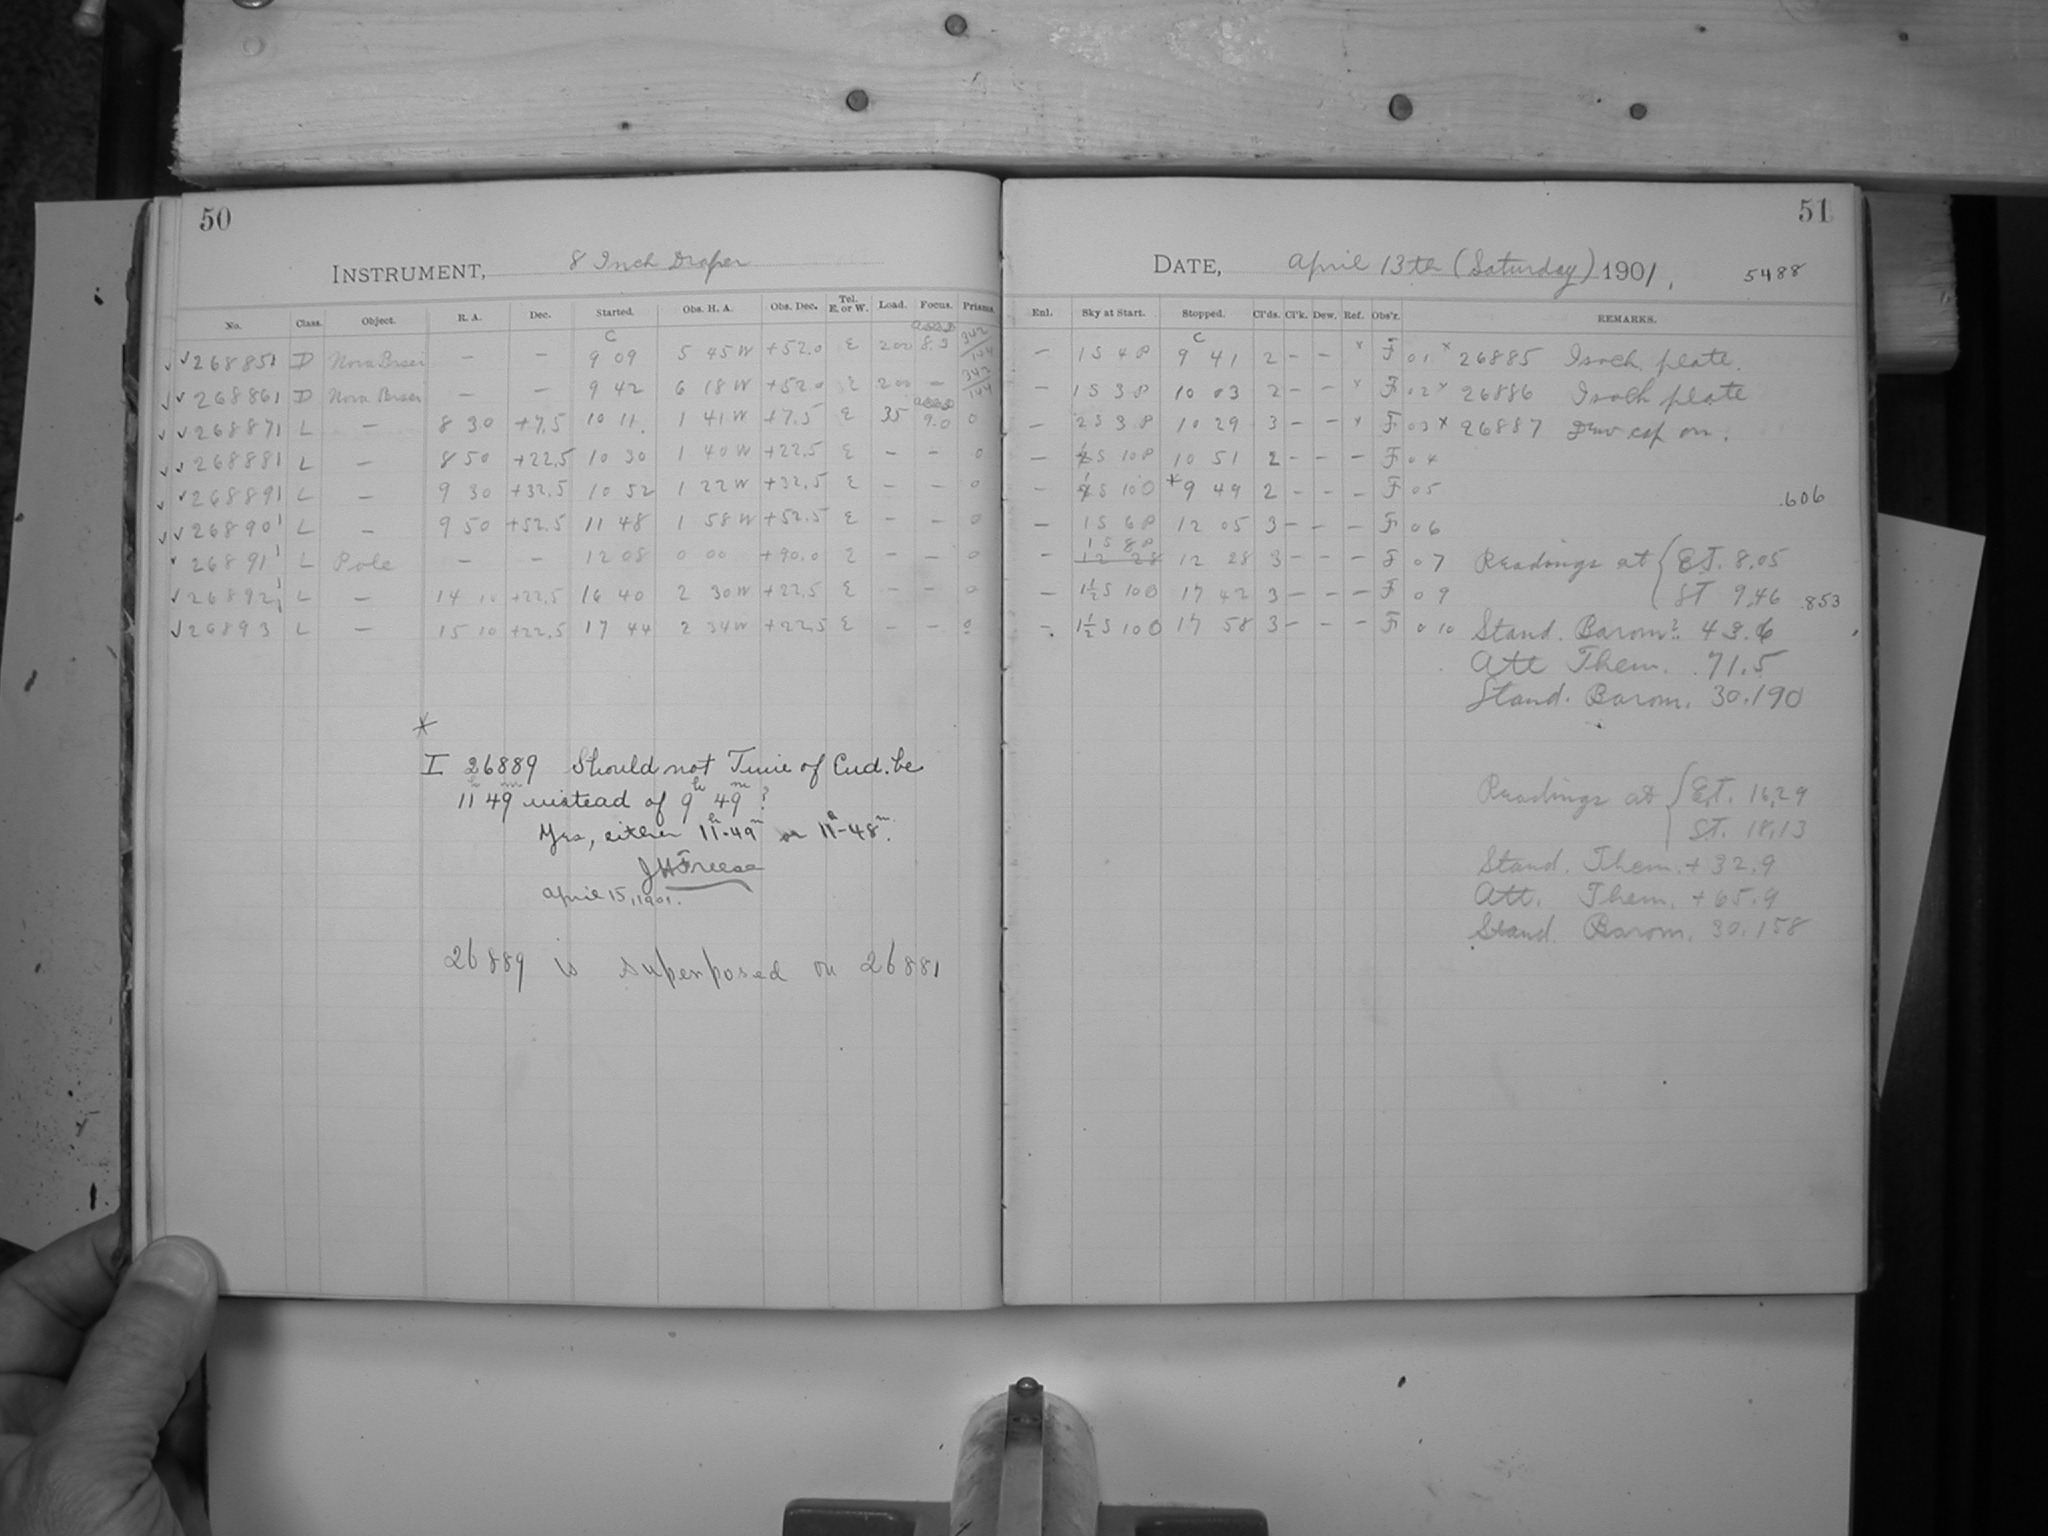 50
INSTRUMENT, 8 Inch Draper
No. Class. Object. R. A. Dec. Started. Obs. H. A. Obs. Dec. Tel. E. or W. Load. Focus. Prisms.
C
26885 D Nova Persei — — 9 09 5 45 W +52.0 E 200 8.3
26886 D Nova Persei — — 9 42 6 18 W +52.0 E 200 —
26887 L — 8 30 +7.5 10 11 1 41 W +7.5 E 35 9.0 0
26888 L — 8 50 +22.5 10 30 1 40 W +22.5 E — — 0
26889 L — 9 30 +32.5 10 52 1 22 W +32.5 E — — 0
26890 L — 9 50 +52.5 11 48 1 58 W +52.5 E — — 0
26891 L Pole — — 12 08 0 00 +90.0 E — — 0
26892 L — 14 10 +22.5 16 40 2 30 W +22.5 E — — 0
26893 L — 15 10 +22.5 17 44 2 34 W +22.5 E — — 0
*
I 26889 Should not Time of End. be
11h 49m instead of 9h 49m?
Yes, either 11h-49m or 11h-48m.
JHFreese
April 15, 1901.
26889 is superposed on 26881
51
DATE, April 13th (Saturday) 1901, 5488
Enl. Sky at Start. Stopped. Cl'ds. Cl'k. Dew. Ref. Obs'r. REMARKS.
C
— 1 S 4 P 9 41 2 — — x F 01 x 26885 Isoch plate.
— 1 S 3 P 10 03 2 — — x F 02 x 26886 Isoch plate
— 2 S 3 P 10 29 3 — — x F 03 x 26887 Dew cap on.
— S 10 P 10 51 2 — — — F 04
— S 10 0 *9 49 2 — — — F 05
.606
— 1 S 6 P 12 05 3 — — — F 06
1 S 8 P
— 12 28 12 28 3 — — — F 07 Readings at { E.T. 8.05
— 1½ S 10 0 17 42 3 — — — F 09 S.T. 9.46 .853
— 1½ S 10 0 17 58 3 — — — F 010 Stand. Barom?. 43.6
Att Them. 71.5
Stand. Barom. 30.190
Readings at { E.T. 16.29
S.T. 18.13
Stand. Them. + 32.9
Att. Them. + 65.9
Stand. Barom. 30.158